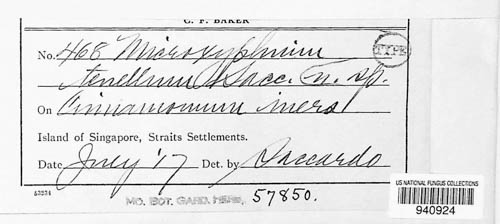 C. F. BAKER
No. 468 Microxyphium
TYPE
tenellum Sacc. n. sp.
On Cinnamomum iners
Island of Singapore, Straits Settlements.
Date July '17 Det. by Saccardo
63231
MO. BOT. GARD. HERB., 57850.
US NATIONAL FUNGUS COLLECTIONS
940924